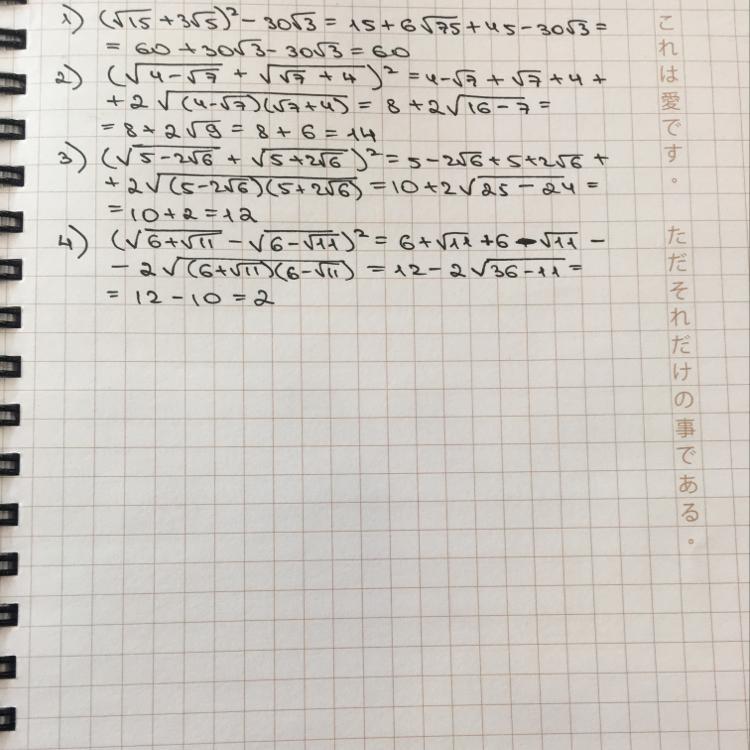 1) (√15 + 3√5)² - 30√3 = 15 + 6√75 + 45 - 30√3 =
= 60 + 30√3 - 30√3 = 60
2) (√(4-√7) + √(√7+4))² = 4-√7 + √7 + 4 +
+ 2√((4-√7)(√7+4)) = 8 + 2√(16-7) =
= 8 + 2√9 = 8 + 6 = 14
3) (√(5-2√6) + √(5+2√6))² = 5-2√6 + 5+2√6 +
+ 2√((5-2√6)(5+2√6)) = 10 + 2√(25-24) =
= 10 + 2 = 12
4) (√(6+√11) - √(6-√11))² = 6+√11 + 6 - √11 -
- 2√((6+√11)(6-√11)) = 12 - 2√(36-11) =
= 12 - 10 = 2
これは愛です。ただそれだけの事である。